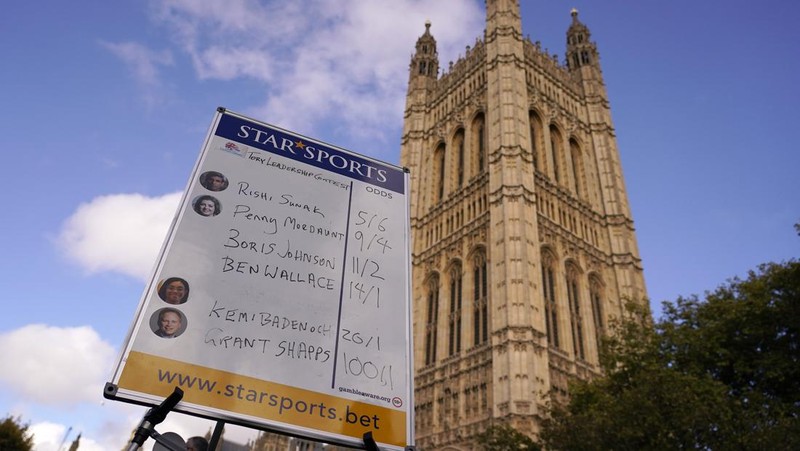 STAR SPORTS
TORY LEADERSHIP CONTEST ODDS
RISHI SUNAK 5/6
PENNY MORDAUNT 9/4
BORIS JOHNSON 11/2
BEN WALLACE 14/1
KEMI BADENOCH 20/1
GRANT SHAPPS 100/1
gambleaware.org
www.starsports.bet